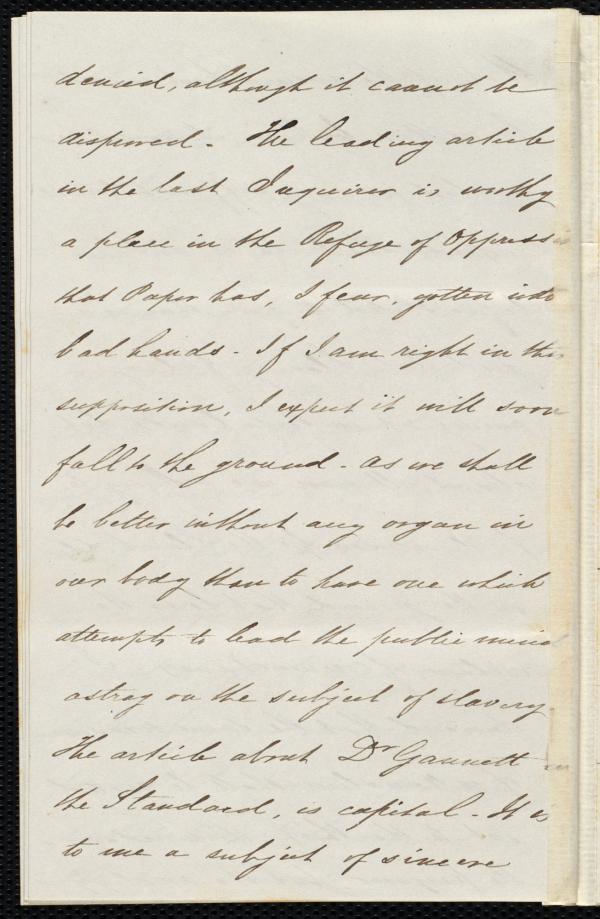 denied, although it cannot be
disproved. The leading article
in the last Inquirer is worthy
a place in the Refuge of Oppressi
that Paper has, I fear, gotten into
bad hands. If I am right in this
supposition, I expect it will soon
fall to the ground. as we shall
be better without any organ in
our body than to have one which
attempts to lead the public mind
astray on the subject of slavery.
The article about Dr Gannett in
the Standard, is capital. It is
to me a subject of sincere